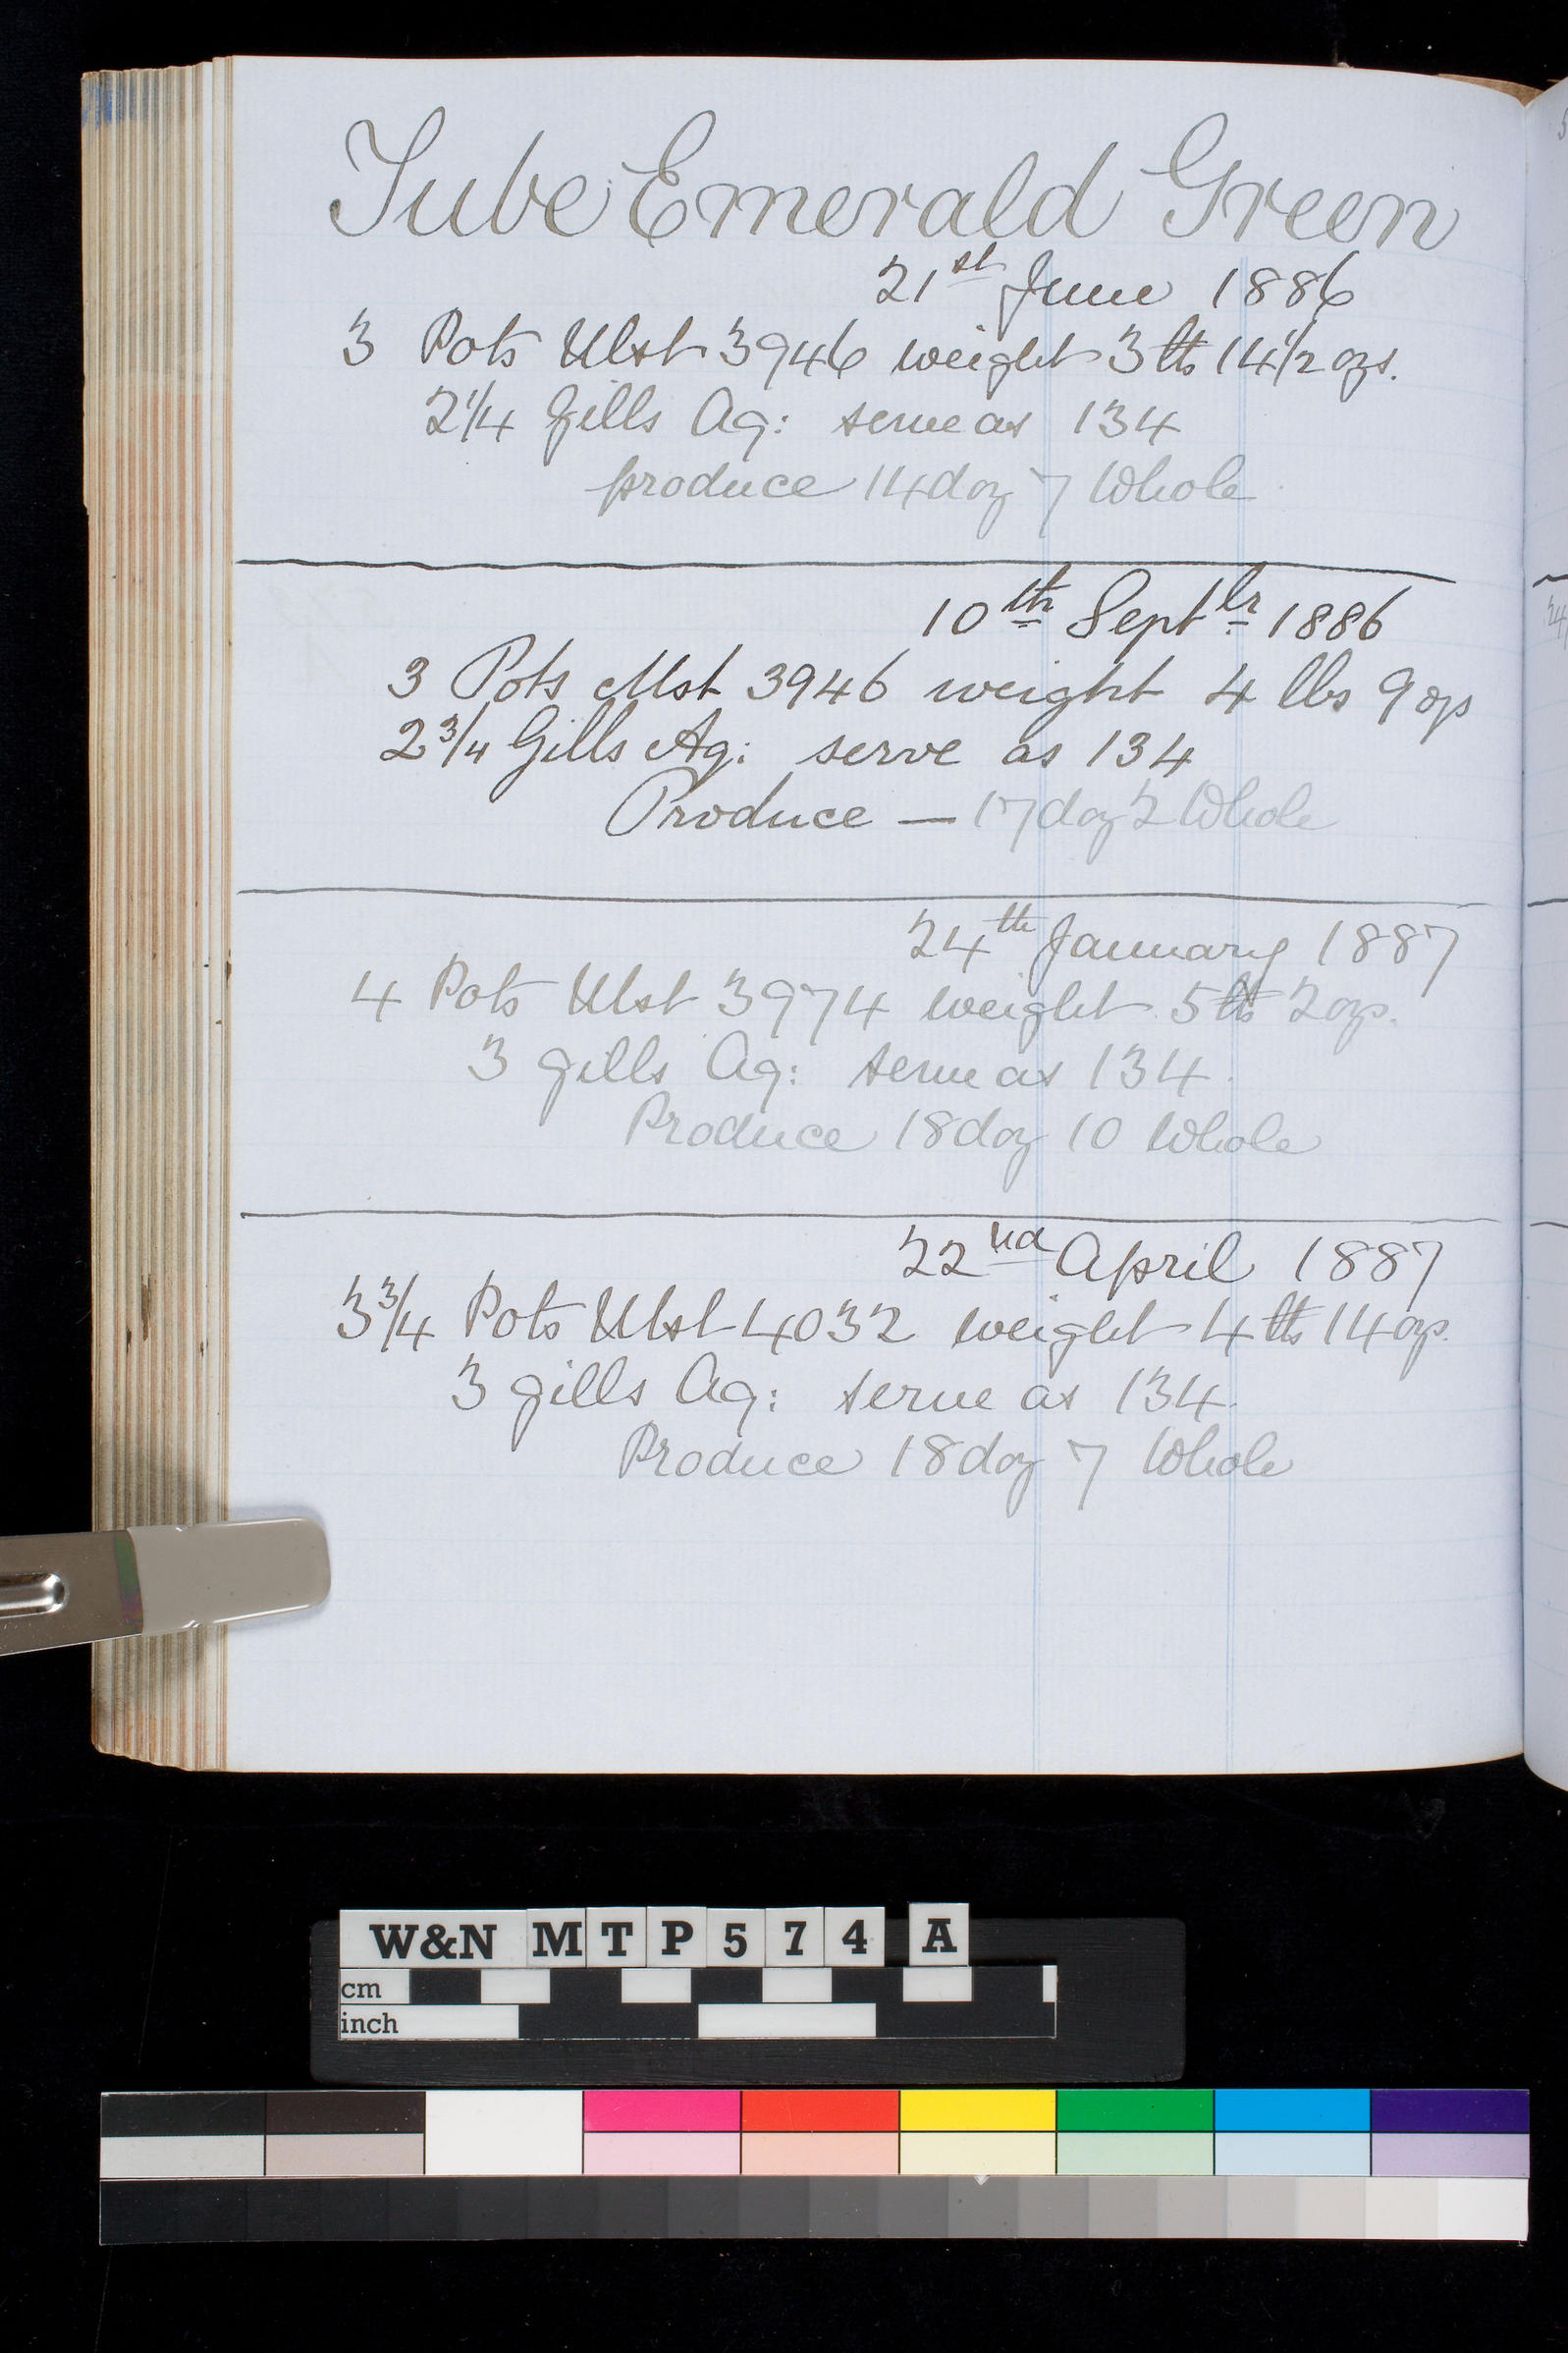 Tube Emerald Green
21st June 1886
3 Pots Mst 3946 weight 3 lbs 14 1/2 ozs.
2 1/4 Gills Aq: serve as 134
produce 14 doz 7 Whole
10th Septbr 1886
3 Pots Mst 3946 weight 4 lbs 9 ozs
2 3/4 Gills Aq: serve as 134
Produce — 17 doz 2 Whole
24th January 1887
4 Pots Mst 3974 weight 5 lbs 2 ozs.
3 gills Aq: serve as 134.
Produce 18 doz 10 Whole
22nd April 1887
3 3/4 Pots Mst 4032 weight 4 lbs 14 ozs.
3 gills Aq: serve as 134.
Produce 18 doz 7 Whole
W&N MTP574 A
cm
inch